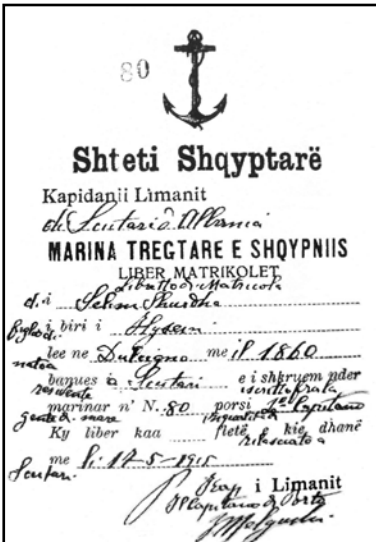 80
Shteti Shqyptarë
Kapidanii Limanit
di Scutari d'Albania
MARINA TREGTARE E SHQYPNIIS
LIBER MATRIKOLET
Libretto di Matricola
d. i Selim Skurdha
figlio di i biri i Hysein
nato a lee ne Dulcigno me il 1860
residente banues i a Scutari e i shkruem nder
iscritto fra la
marinar n' N. 80 porsi 1° Capitano
gente di mare in qualità di
Ky liber kaa fletë e kje dhanë
rilasciato a
Scutari me li 17-5-1915
Kap i Limanit
Il Capitano di Porto